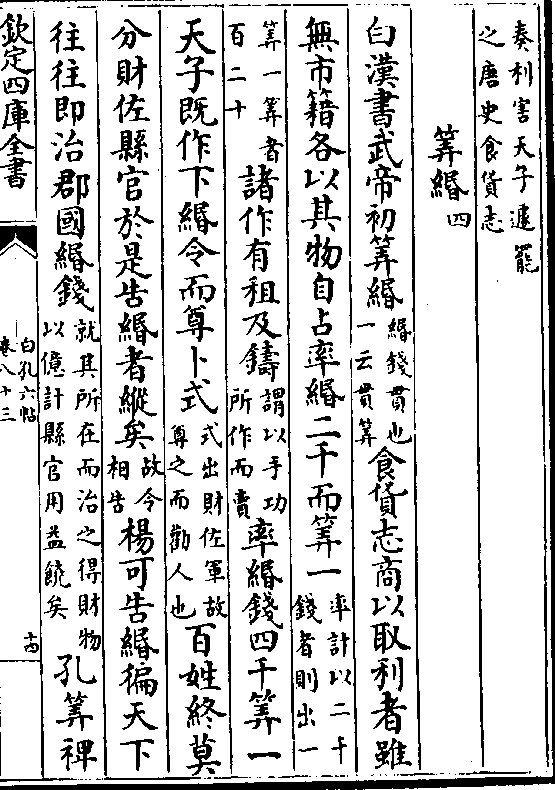 奏利害天子遽罷
之唐史食貨志
筭緡四
白漢書武帝初筭緡緡錢貫也一云貫筭食貨志商以取利者雖
無市籍各以其物自占率緡二千而筭一率計以二千錢者則出一
筭一筭者百二十諸作有租及鑄謂以手功所作而賣率緡錢四千筭一
天子既作下緡令而尊卜式式出財佐軍故尊之而勸人也百姓終莫
分財佐縣官於是告緡者縱矣故令相告楊可告緡徧天下
往往即治郡國緡錢就其所在而治之得財物以億計縣官用益饒矣孔筭裨
欽定四庫全書
白孔六帖
卷八十三
十四